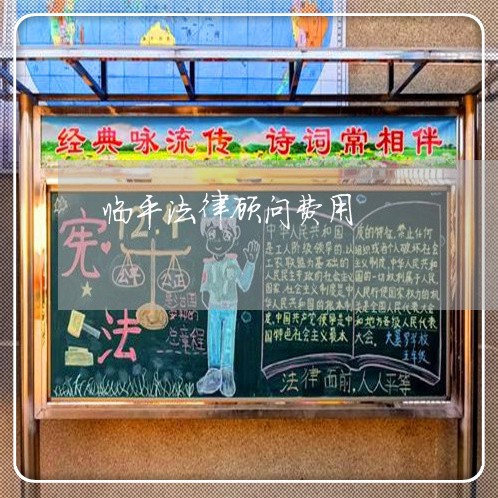 经典咏流传 诗词常相伴
临平法律顾问费用
宪法
公平 公正
总章程
中华人民共和国
是工人阶级领导的,以
工农联盟为基础的
人民民主专政的社会主义
国家,社会主义制度是中
华人民共和国的根本制
度。中国共产党领导是中
国特色社会主义最本
质的特征。禁止任何
组织或者个人破坏社会
主义制度。中华人民共和
国的一切权利属于人民。
人民行使国家权力的机
关是全国人民代表大会
和地方各级人民代表
大会。
学校
五年级
法律面前,人人平等